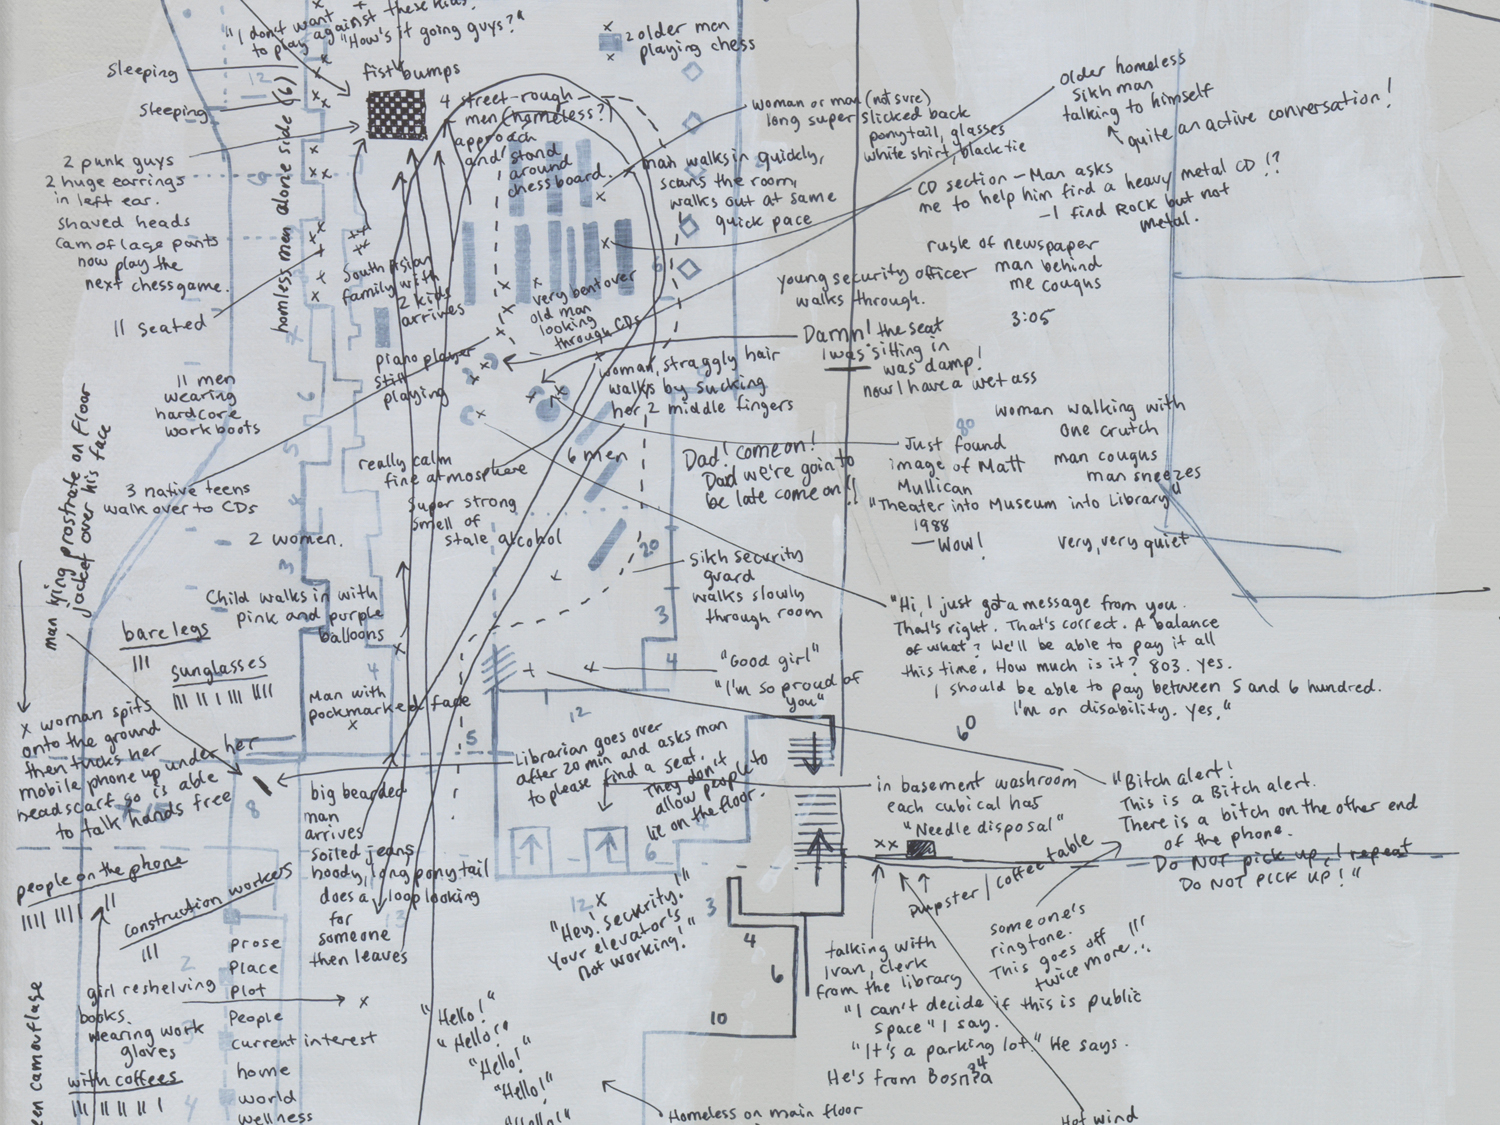 "I don't want
to play against these kids."
"How's it going guys?"
2 older men
playing chess
Sleeping
Sleeping
12
homless men alone side (6)
fist bumps
4 street-rough
men (homeless?)
approach
and stand
around
chessboard.
woman or man (not sure)
long super slicked back
ponytail, glasses
white shirt, black tie
older homeless
Sikh man
talking to himself
quite an active conversation!
2 punk guys
2 huge earrings
in left ear.
shaved heads
camoflage pants
now play the
next chessgame.
man walks in quickly,
scans the room,
walks out at same
quick pace
CD section – Man asks
me to help him find a heavy metal CD!?
– I find ROCK but not
metal.
rusle of newspaper
man behind
me coughs
3:05
young security officer
walks through.
South Asian
family with
2 kids
arrives
very bent over
old man
looking
through CDs
11 seated
Damn! the seat
I was sitting in
was damp!
now I have a wet ass
piano player
still
playing
woman, straggly hair
walks by sucking
her 2 middle fingers
11 men
wearing
hardcore
workboots
man lying prostrate on floor
jacket over his face
woman walking with
one crutch
man coughs
man sneezes
80
Just found
image of Matt
Mullican
"Theater into Museum into Library"
1988
– Wow!
very, very quiet
Dad! come on!
Dad we're goin to
be late come on!!
6 men
really calm
fine atmosphere
Super strong
smell of
stale alcohol
3 native teens
walk over to CDs
2 women.
20
Sikh security
guard
walks slowly
through room
3
4
Child walks in with
pink and purple
balloons
bare legs
sunglasses
"Good girl"
"I'm so proud of
you"
"Hi, I just got a message from you.
That's right. That's correct. A balance
of what? We'll be able to pay it all
this time. How much is it? 803. Yes.
I should be able to pay between 5 and 6 hundred.
I'm on disability. Yes."
60
4
Man with
pockmarked face
x woman spits
onto the ground
then tucks her
mobile phone up under her
headscarf so is able
to talk hands free
12
5
Librarian goes over
after 20 min and asks man
to please find a seat.
They don't
allow people to
lie on the floor.
in basement washroom
each cubical has
"Needle disposal"
"Bitch alert!
This is a Bitch alert.
There is a bitch on the other end
of the phone.
Do NOT pick up, I repeat
Do NOT PICK UP!"
8
big bearded
man
arrives
soiled jeans
hoody, long ponytail
does a loop looking
for
someone
then leaves
6
xx
Dumpster / Coffee table
people on the phone
construction workers
12 x
"Hey! Security!
Your elevator's
not working!"
3
4
6
10
someone's
ringtone.
This goes off
twice more...
talking with
Ivan, clerk
from the library
"I can't decide if this is public
space" I say.
"It's a parking lot." He says.
He's from Bosnia
34
prose
Place
Plot
People
current interest
home
world
wellness
2
3
4
girl reshelving
books.
wearing work
gloves
with coffees
"Hello!"
"Hello?"
"Hello!"
"Hello!"
"Hello!"
Homeless on main floor
Hot wind
camouflage